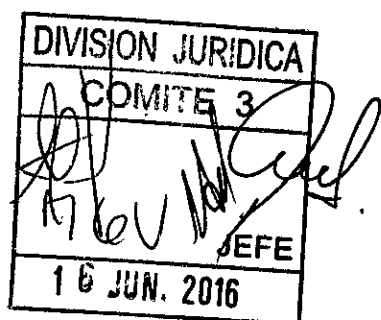 DIVISION JURIDICA
COMITE 3
JEFE
16 JUN. 2016